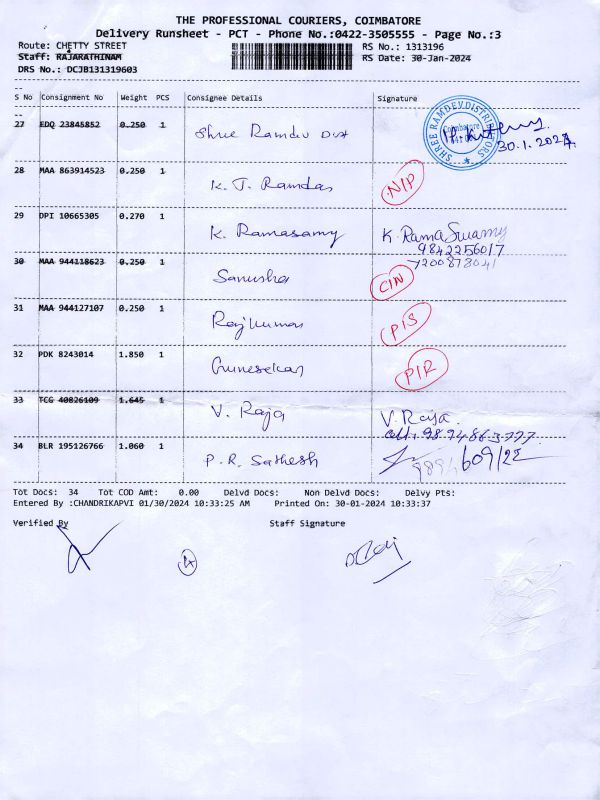 THE PROFESSIONAL COURIERS, COIMBATORE
Delivery Runsheet - PCT - Phone No.:0422-3505555 - Page No.:3
Route: CHETTY STREET RS No.: 1313196
Staff: RAJARATHINAM RS Date: 30-Jan-2024
DRS No.: DCJB131319603
S No Consignment No Weight PCS Consignee Details Signature
27 EDQ 23845852 0.250 1 Shree Ramdev Dist
SHREE RAMDEV DISTRIBUTORS
Coimbatore
30.1.2024
28 MAA 863914523 0.250 1 K. T. Ramdas N/P
29 DPI 10665305 0.270 1 K. Ramasamy K. RamaSwamy
9842256017
30 MAA 944118623 0.250 1 Sanusha C/N
31 MAA 944127107 0.250 1 Rajkumar P/S
32 PDK 8243014 1.850 1 Gunesekar P/R
33 TCG 40826109 1.645 1 V. Raja V. Raja.
34 BLR 195126766 1.060 1 P. R. Sathesh 609/22
Tot Docs: 34 Tot COD Amt: 0.00 Delvd Docs: Non Delvd Docs: Delvy Pts:
Entered By :CHANDRIKAPVI 01/30/2024 10:33:25 AM Printed On: 30-01-2024 10:33:37
Verified By Staff Signature